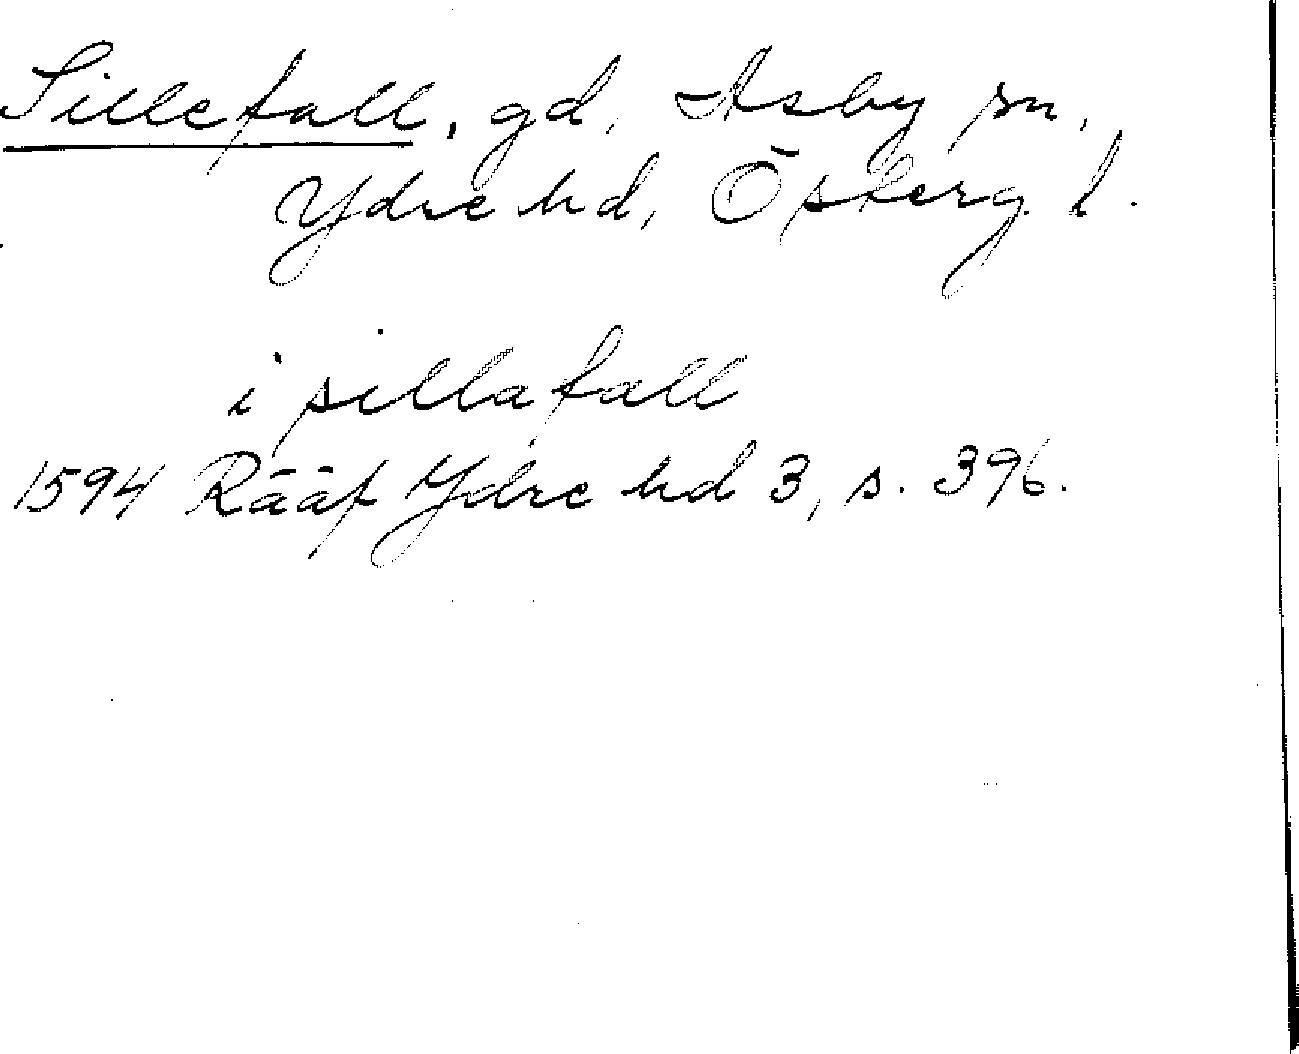 Sillefall, gd, Asby sn,
Ydre hd, Österg. l.
i sillafall
1594 Rääf Ydre hd 3, s. 396.